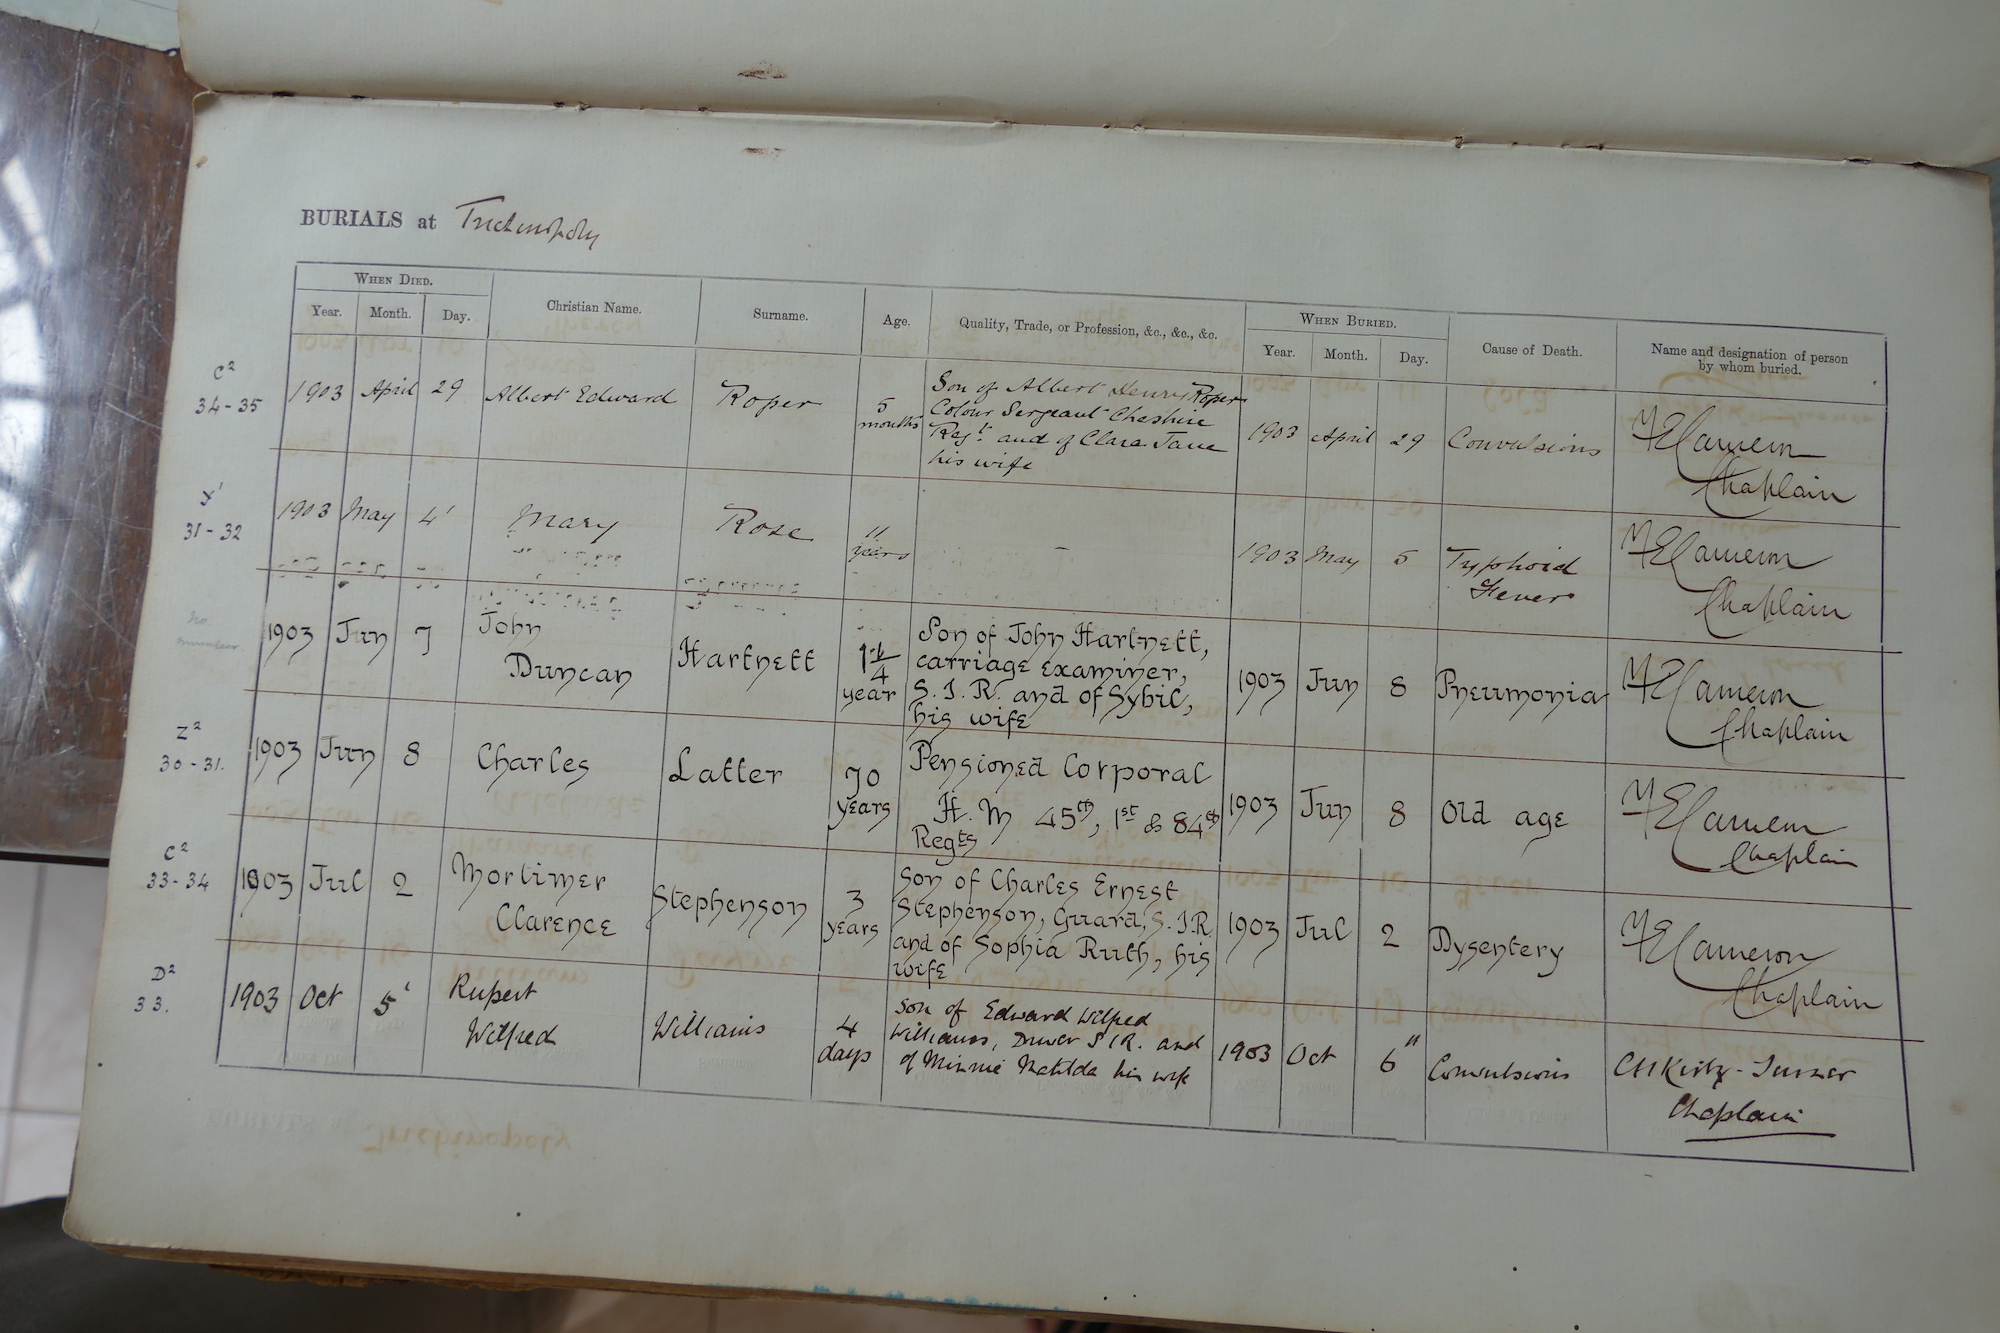 BURIALS at Trichinopoly
WHEN DIED.
Year. Month. Day. Christian Name. Surname. Age. Quality, Trade, or Profession, &c., &c., &c.
WHEN BURIED.
Year. Month. Day. Cause of Death. Name and designation of person
by whom buried.
C2
34-35
1903 April 29 Albert Edward Roper
5
months
Son of Albert Henry Roper
Colour Sergeant Cheshire
Regt. and of Clara Jane
his wife
1903 April 29 Convulsions
Cameron
Chaplain
31-32
1903 May 4 Mary Rose
11
years
-
1903 May 5 Typhoid
Fever
Cameron
Chaplain
No
number
1903 Jun 7 John
Duncan
Hartnett
year
Son of John Hartnett,
carriage examiner,
S. I. R. and of Sybil,
his wife
1903 Jun 8 Pneumonia
Cameron
Chaplain
Z2
30-31.
1903 Jun 8 Charles Latter
70
years
Pensioned Corporal
H. M 45th, 1st & 84th
Regts
1903 Jun 8 Old age
Cameron
Chaplain
C2
33-34
1903 Jul 2 Mortimer
Clarence
Stephenson
3
years
Son of Charles Ernest
Stephenson, Guard, S. I. R
and of Sophia Ruth, his
wife
1903 Jul 2 Dysentery
Cameron
Chaplain
D2
33.
1903 Oct 5 Rupert
Wilfred
Williams
4
days
Son of Edward Wilfred
Williams, Driver S I R. and
of Minnie Matilda his wife
1903 Oct 6 Convulsions
Chaplain